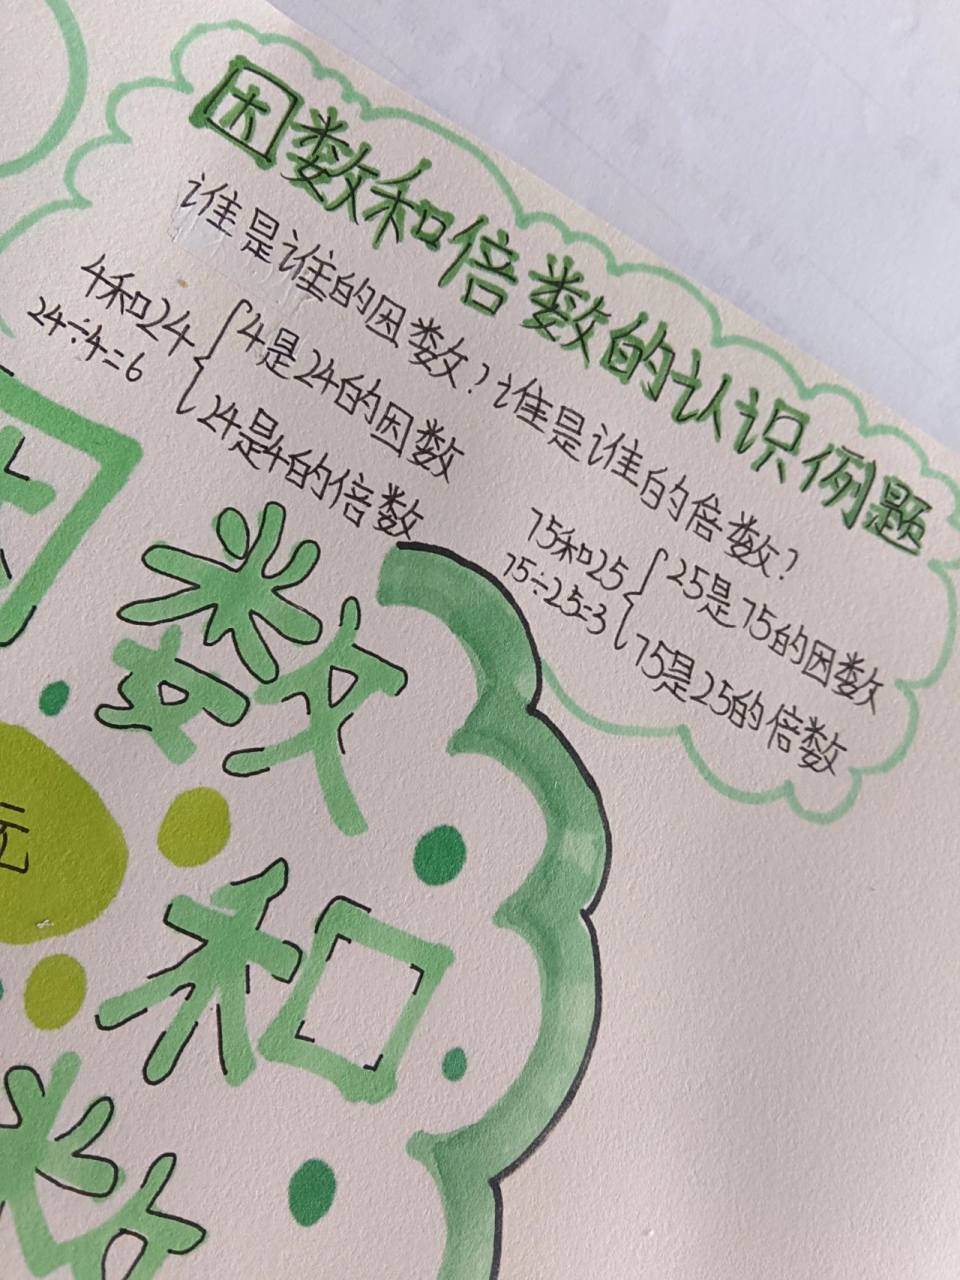 因数和倍数的认识例题
谁是谁的因数?谁是谁的倍数?
4和24
24÷4=6
4是24的因数
24是4的倍数
75和25
75÷25=3
25是75的因数
75是25的倍数
因
数
元
和
数